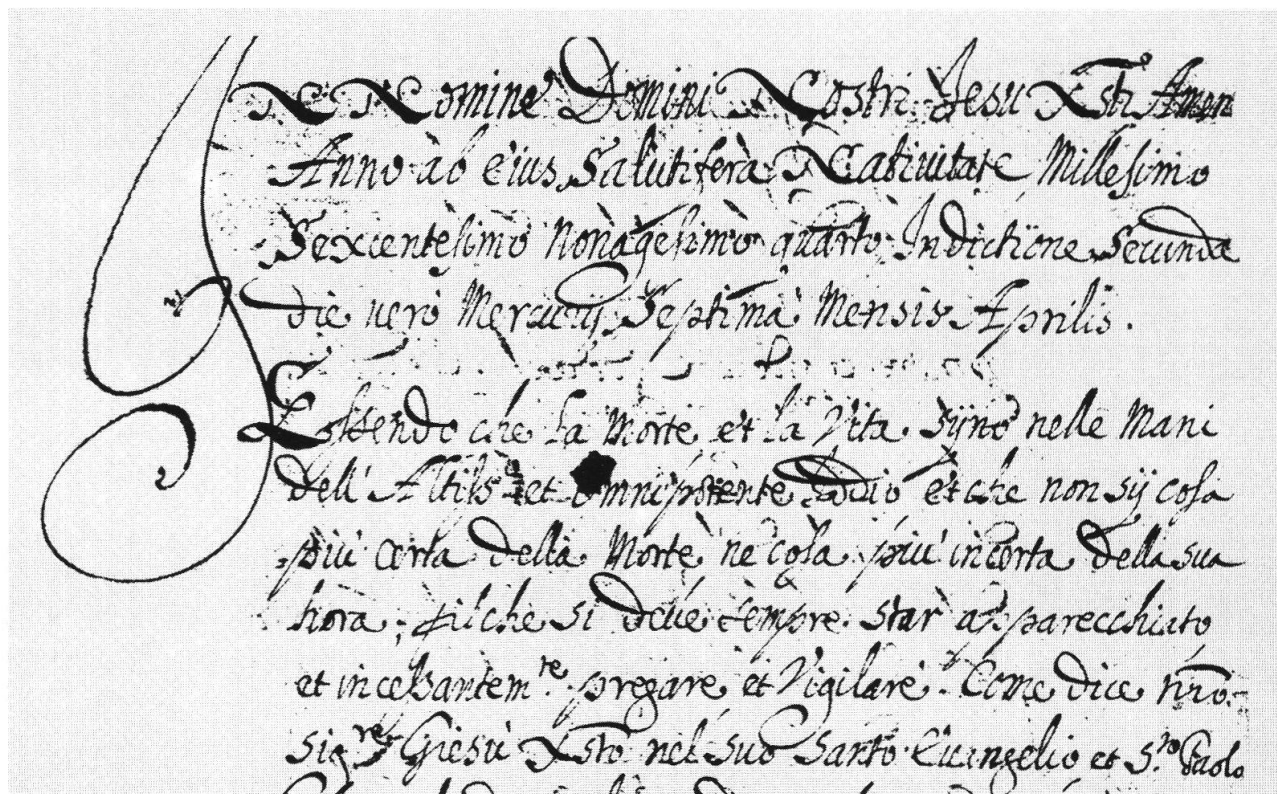 In Nomine Domini Nostri Jesu Xsti Amen
Anno ab eius Salutifera Nativitate Millesimo
Sexcentesimo Nonagesimo quarto Indictione Secunda
die vero Mercurij Septima Mensis Aprilis.
Essendo che la Morte et la Vita sijno nelle Mani
dell' Altiss.o et omnipotente Iddio et che non sij cosa
più certa della Morte ne cosa più incerta della sua
hora, ilche si deue sempre star apparecchiato
et incessantem.te pregare et Vigilare. Come dice nro.
sig.re Giesù Xsto nel suo santo Euangelio et S.to Paolo